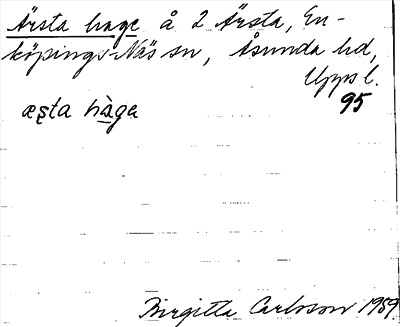 Ärsta hage å 2 Ärsta, En-
köpings-Näs sn, Åsunda hd,
Upps l.
95
æʂta hàga
Birgitta Carlsson 1959